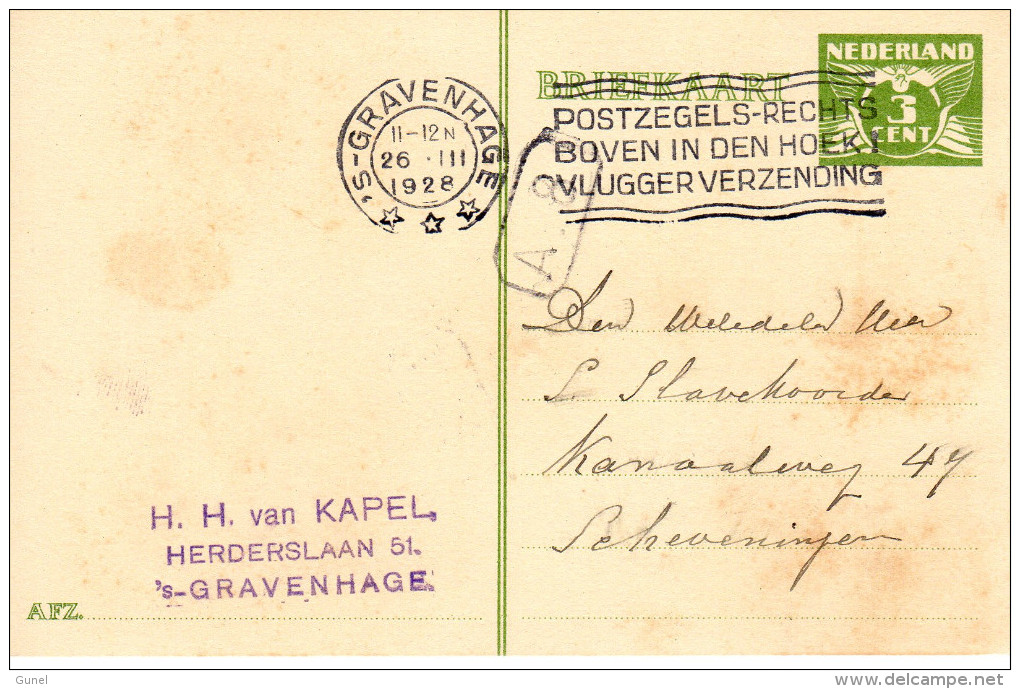 NEDERLAND
3
CENT
BRIEFKAART
'S-GRAVENHAGE
11-12N
26 · III
1928
POSTZEGELS-RECHTS
BOVEN IN DEN HOEK!
VLUGGER VERZENDING
A. 8
Den Weledelen Heer
S Slavekoorde
Kanaalweg 47
Scheveningen
H. H. van KAPEL,
HERDERSLAAN 51.
's-GRAVENHAGE.
AFZ.
Gunel
delcampe.net